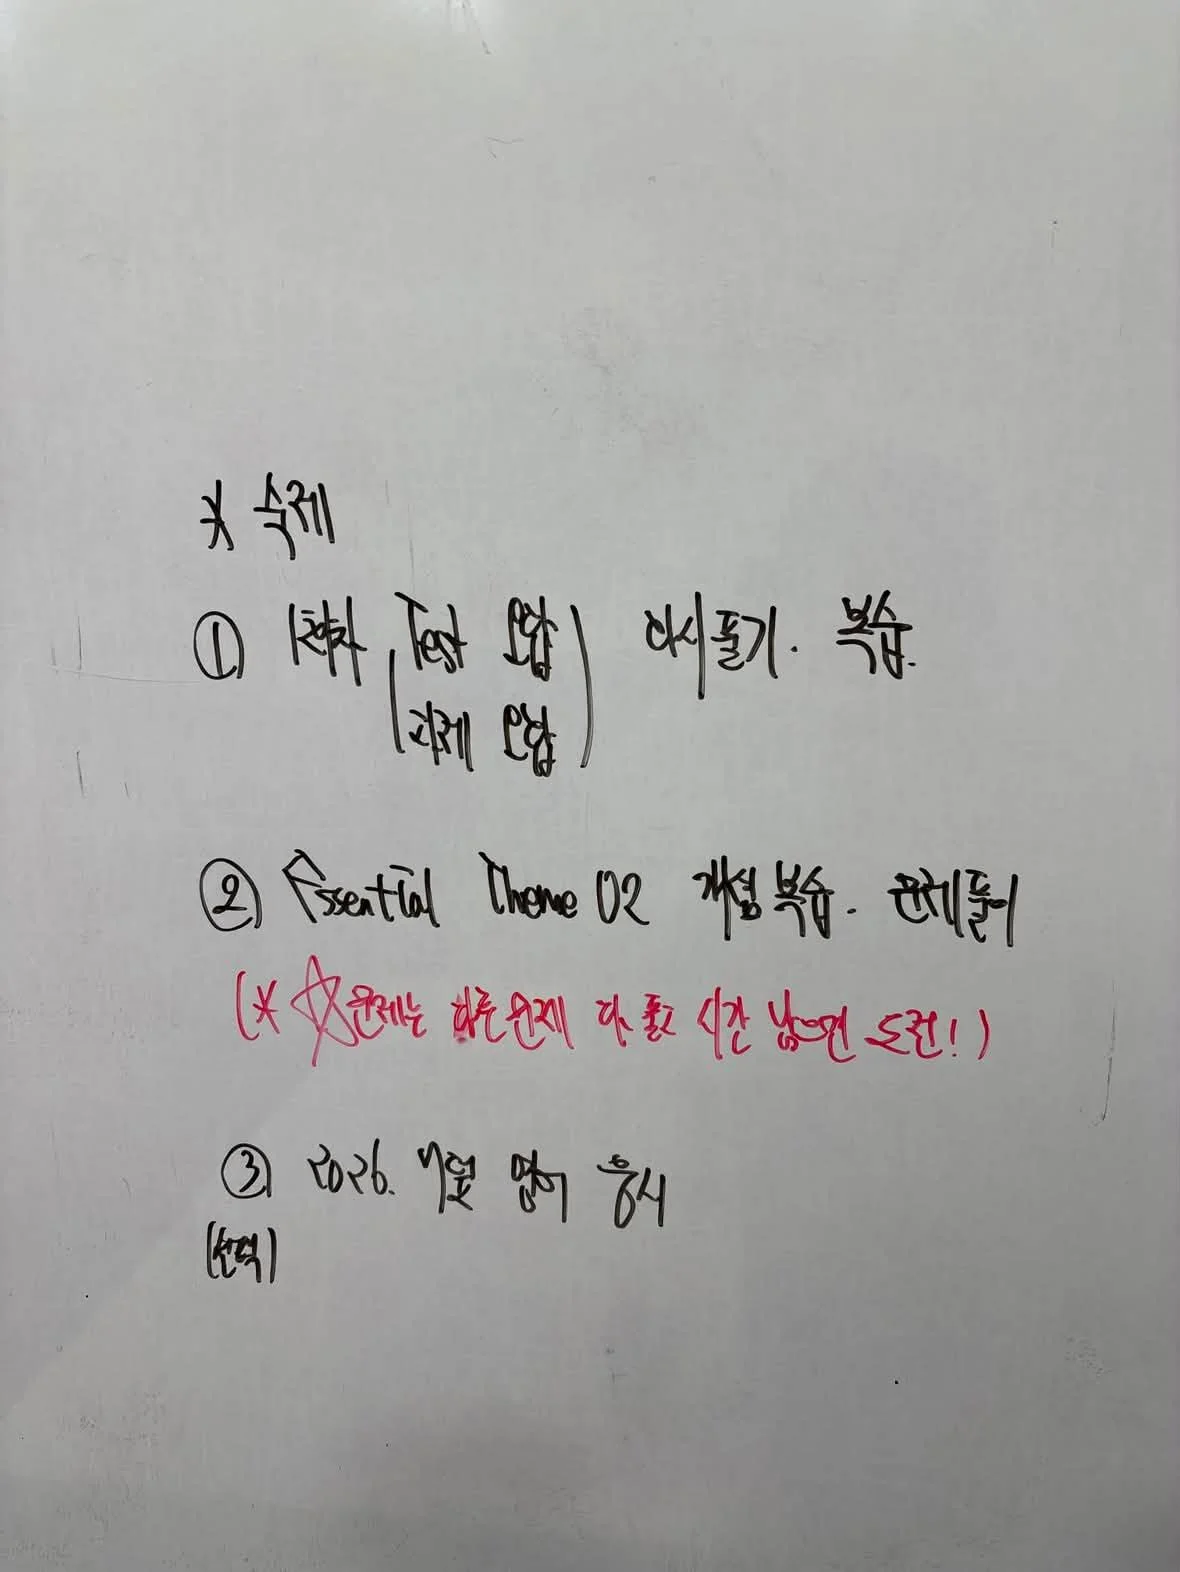 * 숙제
① 1회차 (Test 오답) 다시 풀기. 복습.
(과제 오답)
② Essential Theme 02 개념 복습. 문제풀이
(* ☆문제는 다른문제 다 풀고 시간 남으면 도전!)
③ 2026. 9월 영어 응시
(선택)